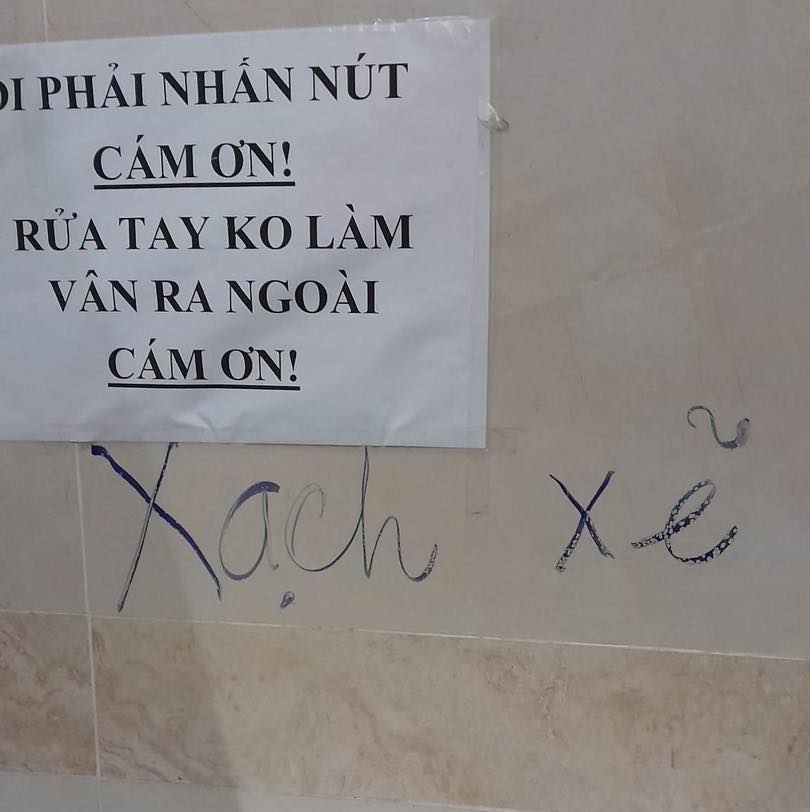 ỌI PHẢI NHẤN NÚT
CÁM ƠN!
RỬA TAY KO LÀM
VÂN RA NGOÀI
CÁM ƠN!
Xạch xẽ